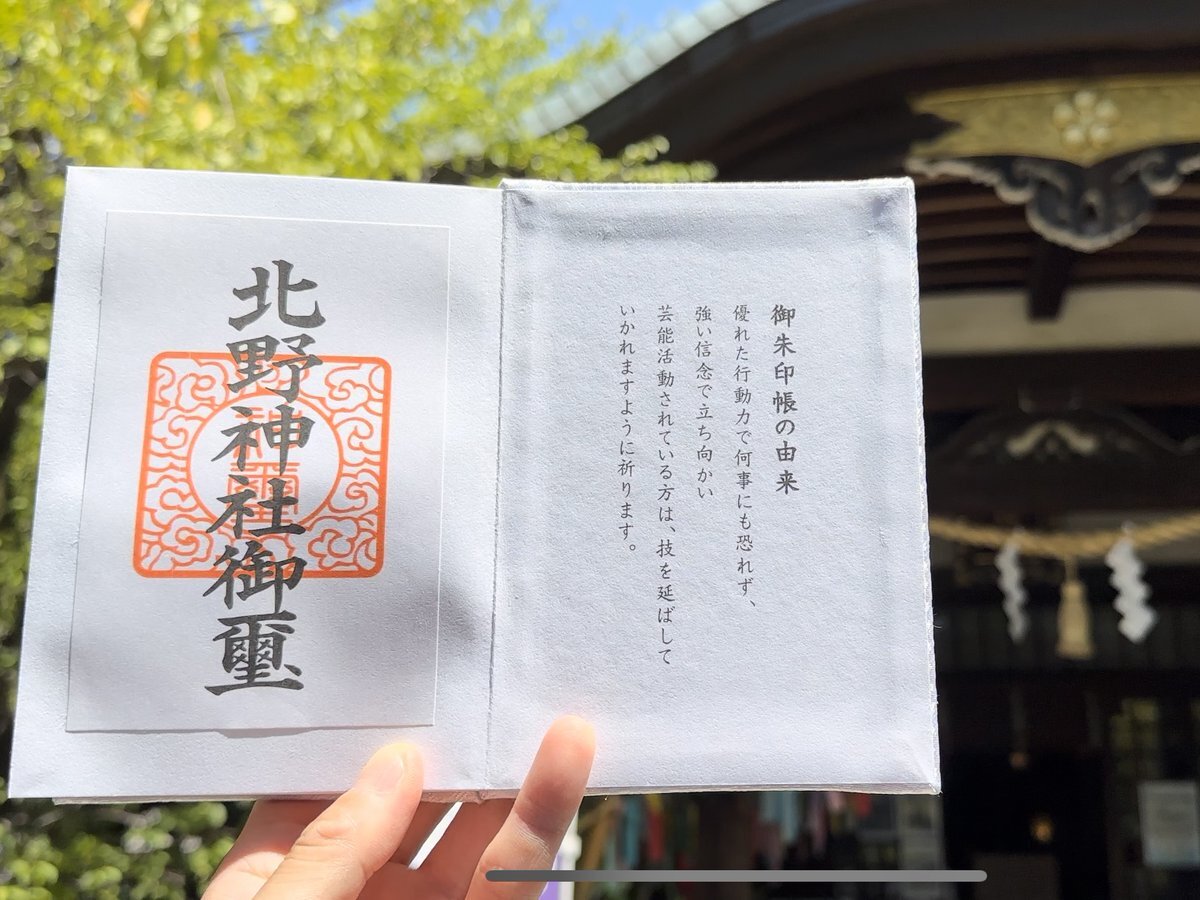 御朱印帳の由来
優れた行動力で何事にも恐れず、
強い信念で立ち向かい
芸能活動されている方は、技を延ばして
いかれますように祈ります。
北野神社御璽
神璽